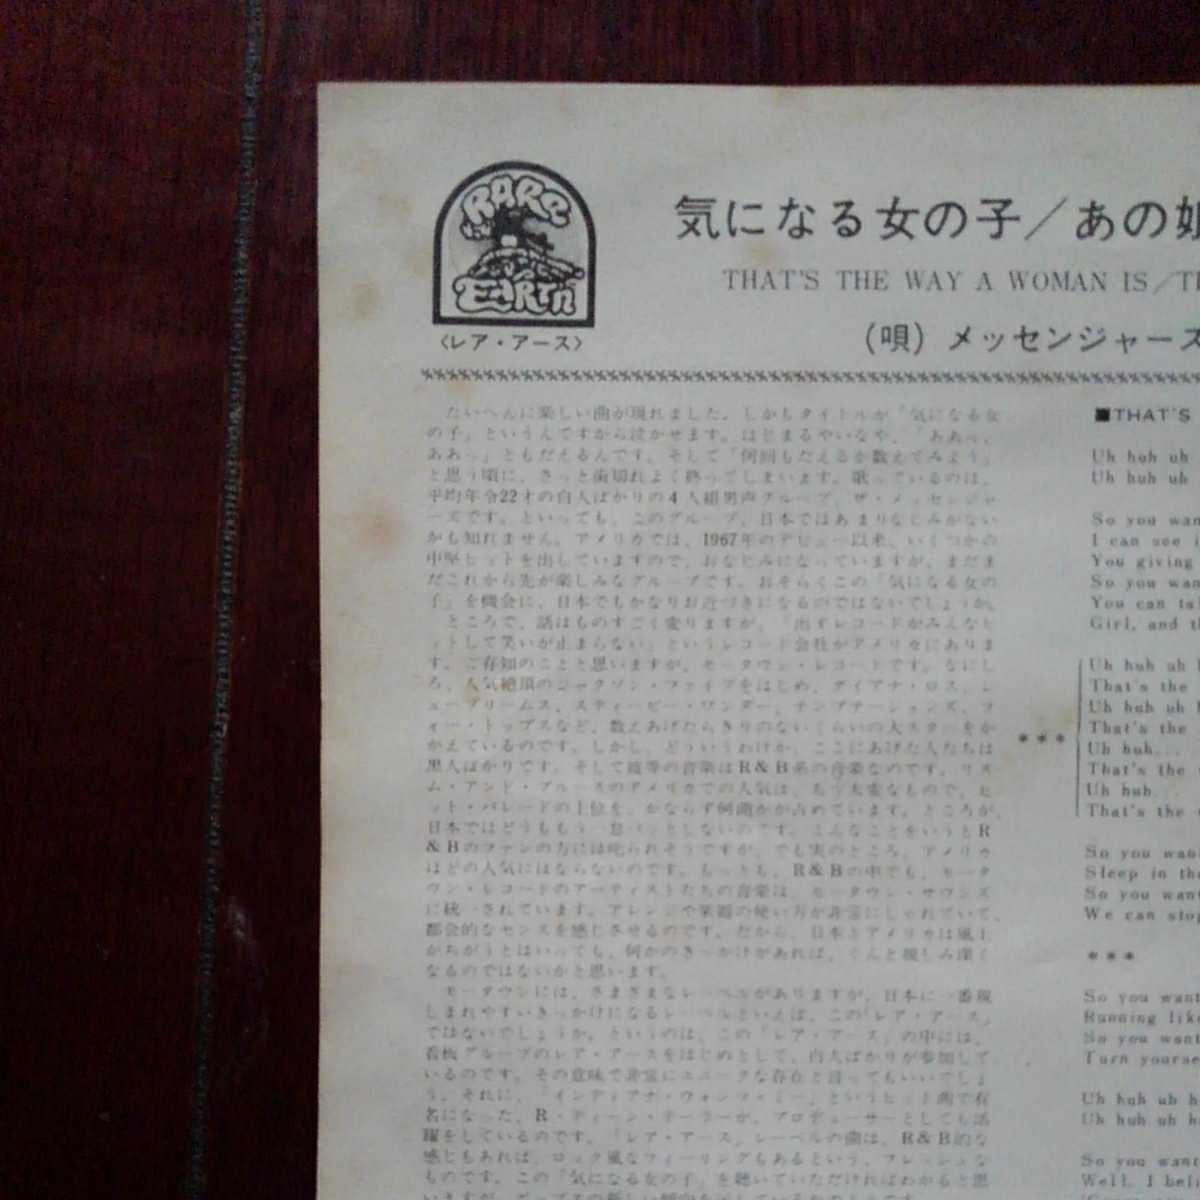 RARE
EARTH
〈レア・アース〉
気になる女の子／あの娘
THAT'S THE WAY A WOMAN IS／T
(唄) メッセンジャーズ
たいへんに楽しい曲が現れました。しかもタイトルが「気になる女
の子」というんですから泣かせます。はじまるやいなや、「ああっ、
ああっ」ともだえるんです。そして「何回もだえるか数えてみよう」
と思う頃に、さっと歯切れよく終ってしまいます。歌っているのは、
平均年令22才の白人ばかりの4人組男声グループ、ザ・メッセンジャ
ーズです。といっても、このグループ、日本ではあまりなじみがない
かも知れません。アメリカでは、1967年のデビュー以来、いくつかの
中堅ヒットを出していますので、おなじみになっていますが、まだま
だこれから先が楽しみなグループです。おそらくこの「気になる女の
子」を機会に、日本でもかなりお近づきになるのではないでしょうか。
ところで、話はものすごく変りますが、「出すレコードがみんなヒ
ットして笑いが止まらない」というレコード会社がアメリカにありま
す。ご存知のことと思いますが、モータウン・レコードです。なにし
ろ、人気絶頂のジャクソン・ファイブをはじめ、ダイアナ・ロス、シ
ュープリームス、スティービー・ワンダー、テンプテーションズ、フ
ォー・トップスなど、数えあげたらきりのないくらいの大スターをか
かえているのです。しかし、どういうわけか、ここにあげた人たちは
黒人ばかりです。そして彼等の音楽はR＆B系の音楽なのです。リズ
ム・アンド・ブルースのアメリカでの人気は、もう大変なもので、ヒ
ット・パレードの上位を、かならず何曲かが占めています。ところが、
日本ではどうももう一息パッとしないのです。こんなことをいうとR
＆Bのファンの方には叱られそうですが、でも実のところ、アメリカ
ほどの人気にはならないのです。もっとも、R＆Bの中でも、モータ
ウン・レコードのアーティストたちの音楽は、モータウン・サウンズ
に統一されています。アレンジや楽器の使い方が非常にしゃれていて、
都会的なセンスを感じさせるのです。だから、日本とアメリカは風土
がちがうとはいっても、何かのきっかけがあれば、ぐんと親しみ深く
なるのではないかと思います。
モータウンには、さまざまなレーベルがありますが、日本に一番親
しまれやすいきっかけになるレーベルといえば、この「レア・アース」
ではないでしょうか。というのは、この「レア・アース」の中には、
看板グループのレア・アースをはじめとして、白人ばかりが参加して
いるのです。その意味で非常にユニークな存在と言ってもいいでしょ
う。それに、「インディアナ・ウォンツ・ミー」というヒット曲で有
名になった、R・ディーン・テーラーが、プロデューサーとしても活
躍をしているのです。「レア・アース」レーベルの曲は、R＆B的な
感じもあれば、ロック風なフィーリングもあるという、フレッシュな
ものです。この「気になる女の子」を聴いていただければわかると思
■THAT'S
Uh huh uh
Uh huh uh
So you wan
I can see i
You giving
So you wan
You can ta
Girl, and th
Uh huh uh h
That's the
Uh huh uh h
That's the
Uh huh...
That's the
Uh huh...
That's the
＊＊＊
So you want
Sleep in the
So you want
We can stop
＊＊＊
So you want
Running like
So you want
Turn yourse
Uh huh uh h
Uh huh uh h
So you want
Well, I hel